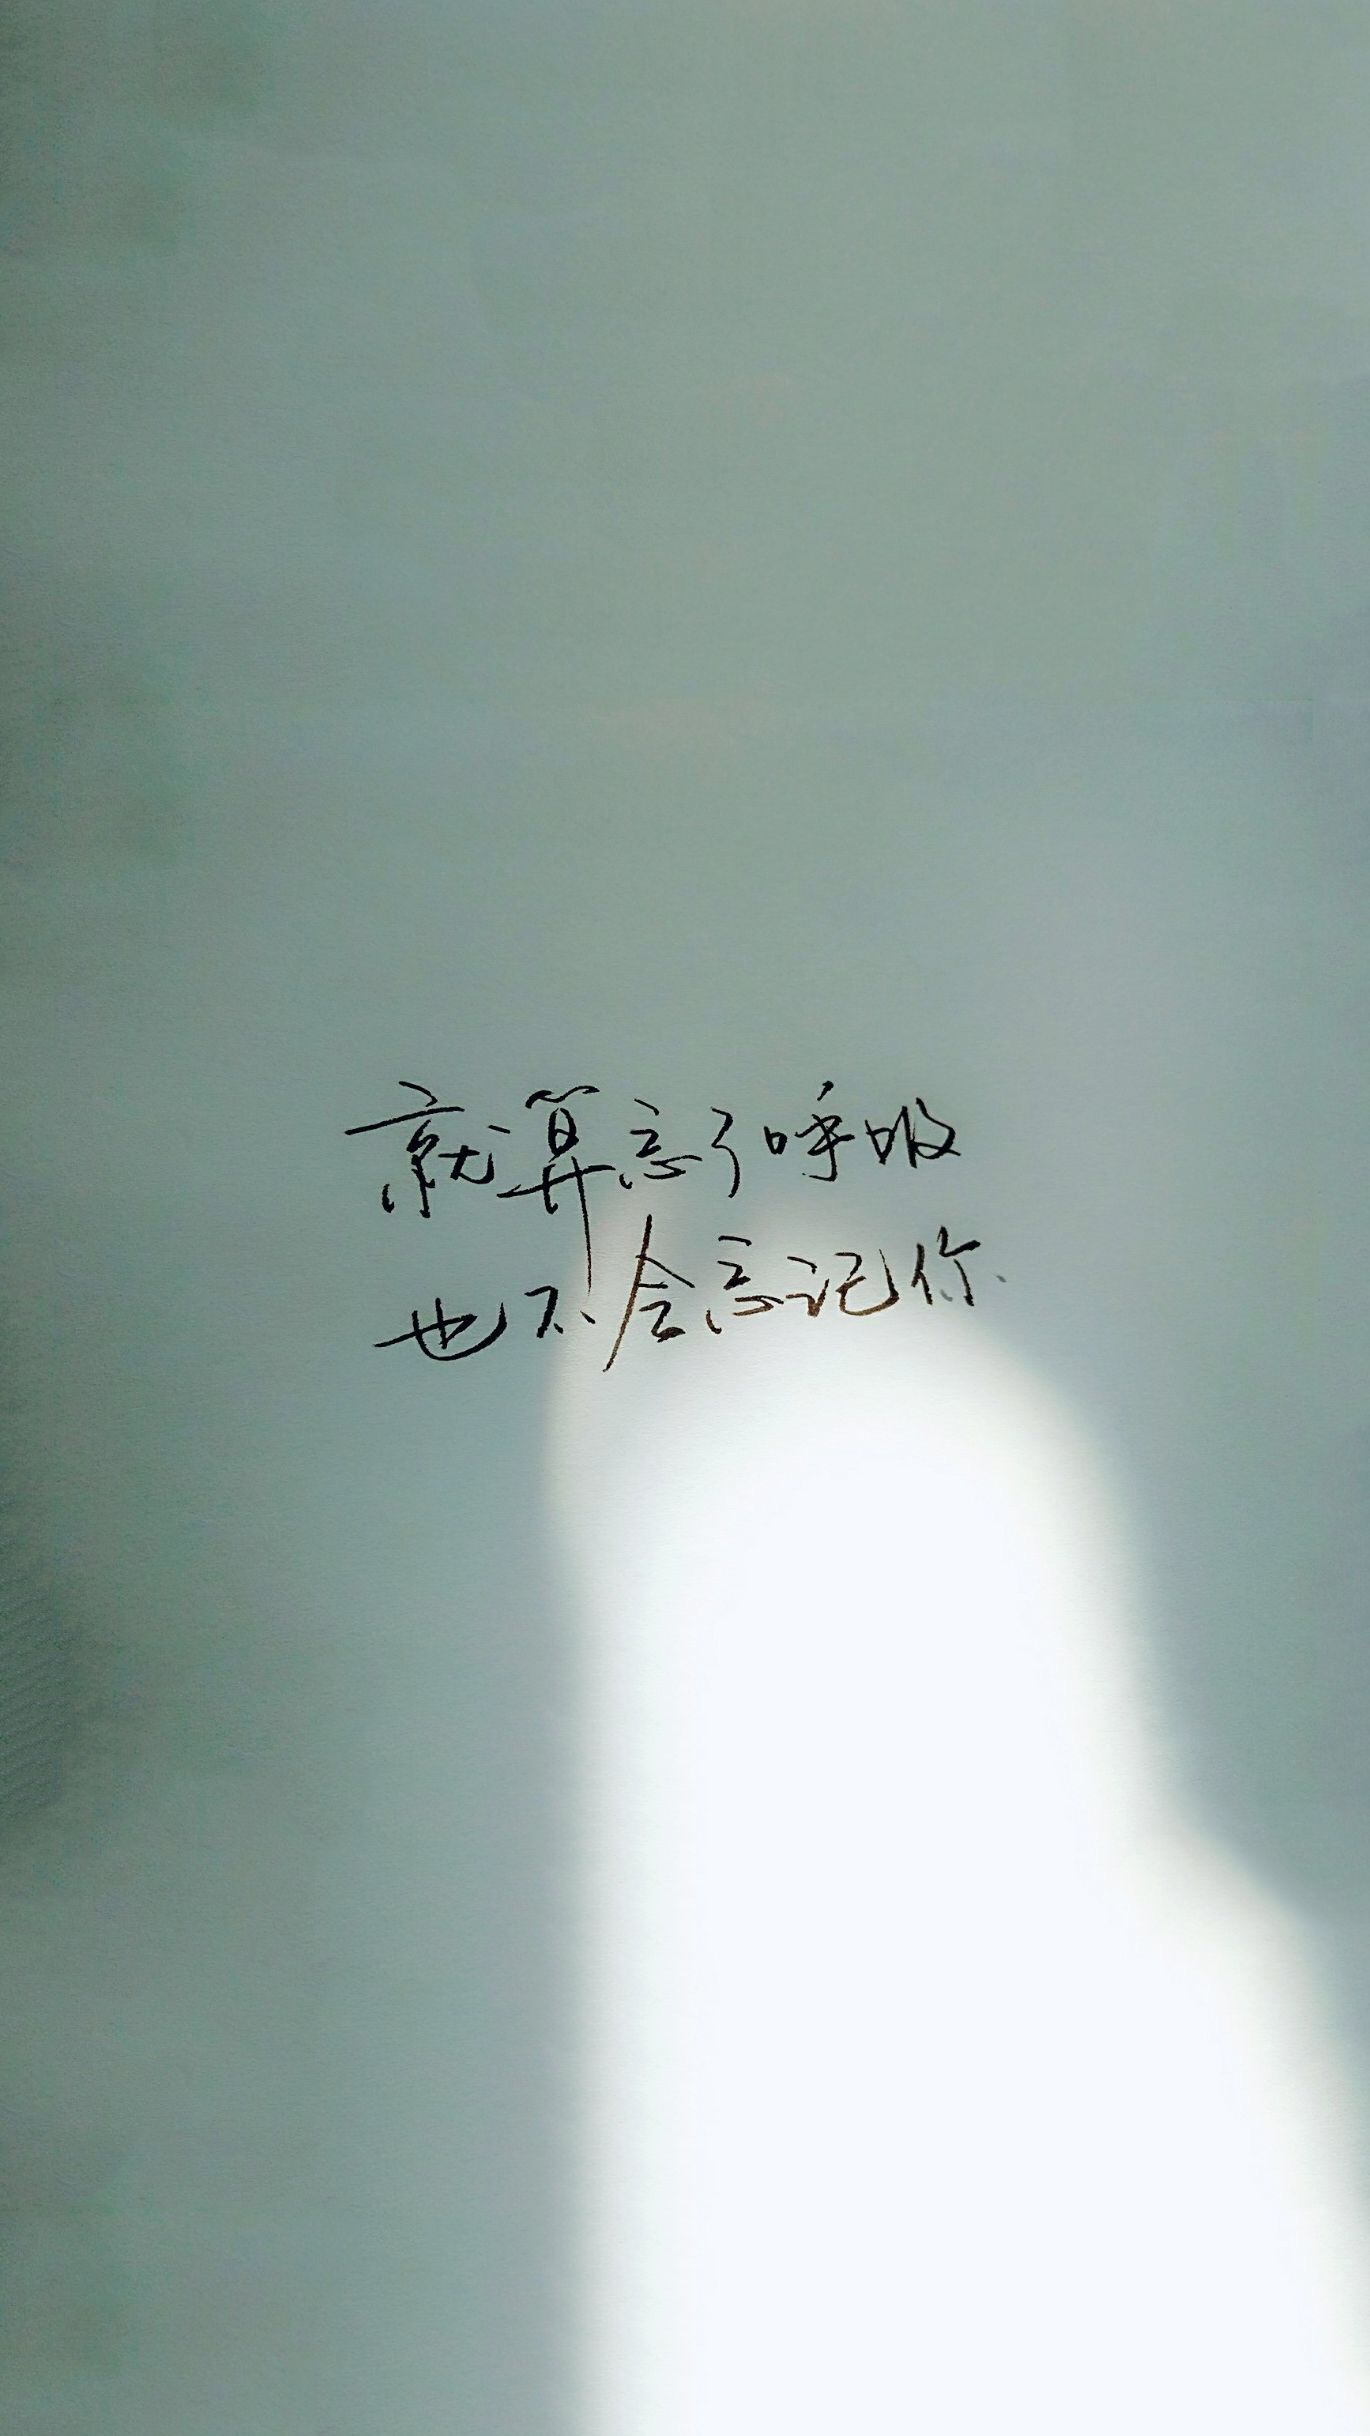 就算忘了呼吸
也不会忘记你